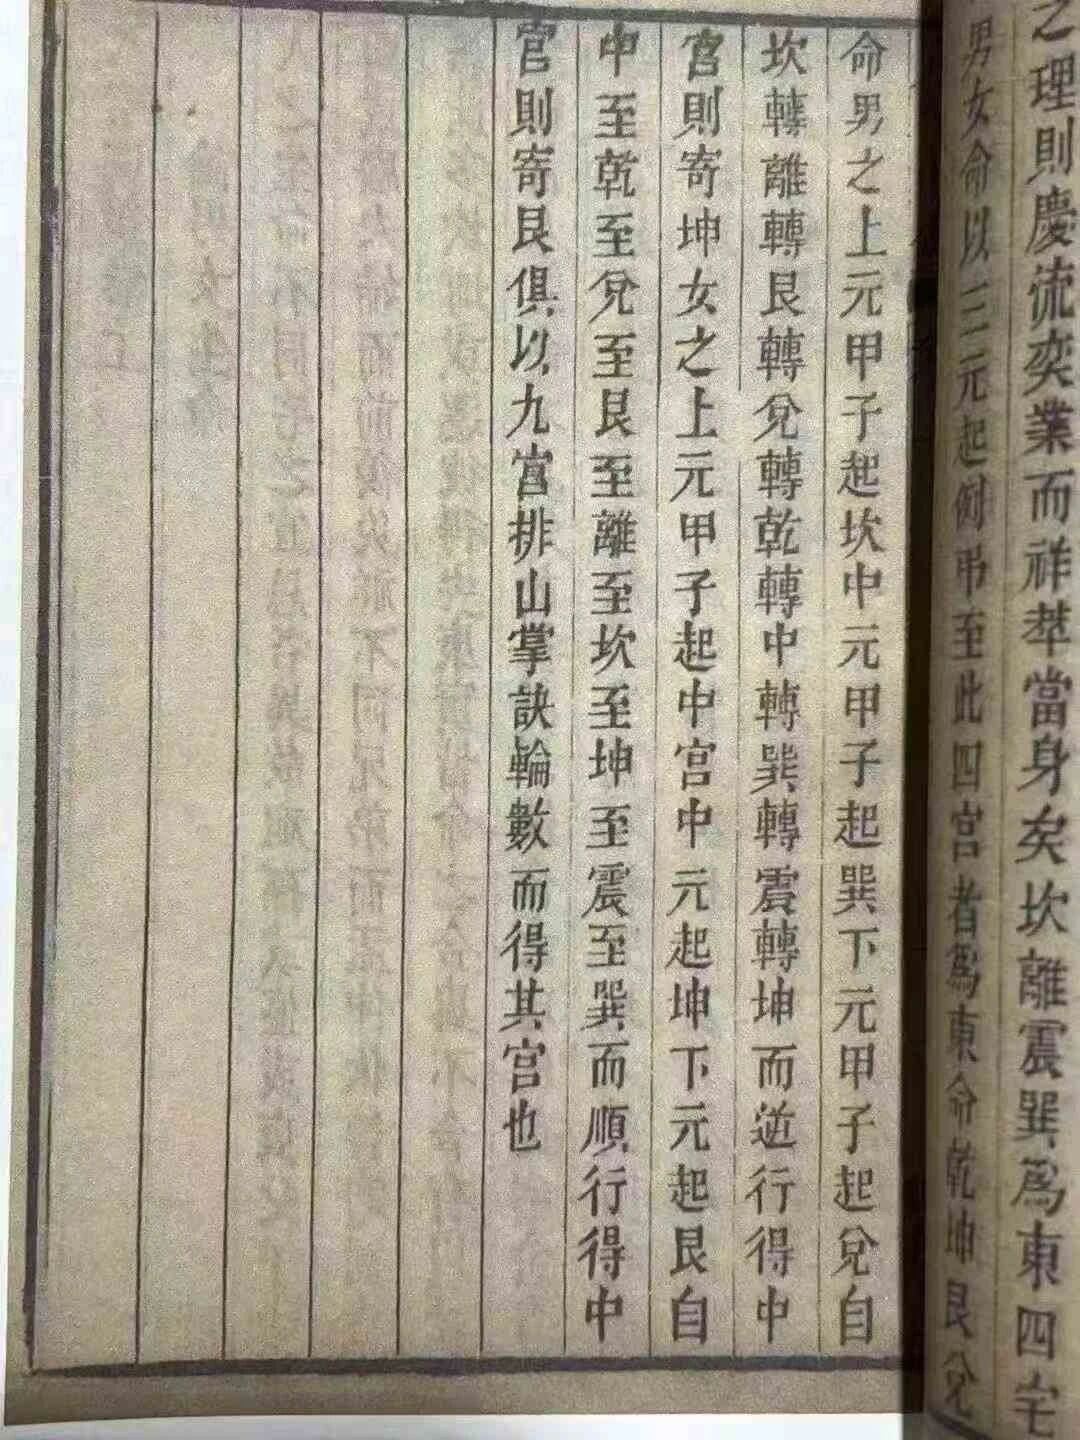 之理則慶流奕業而祥萃當身矣坎離震巽為東四宅
男女命以三元起例弔至此四宮者為東命乾坤艮兌
命男之上元甲子起坎中元甲子起巽下元甲子起兌自
坎轉離轉艮轉兌轉乾轉中轉巽轉震轉坤而逆行得中
宮則寄坤女之上元甲子起中宮中元起坤下元起艮自
中至乾至兌至艮至離至坎至坤至震至巽而順行得中
宮則寄艮俱以九宮排山掌訣輪數而得其宮也